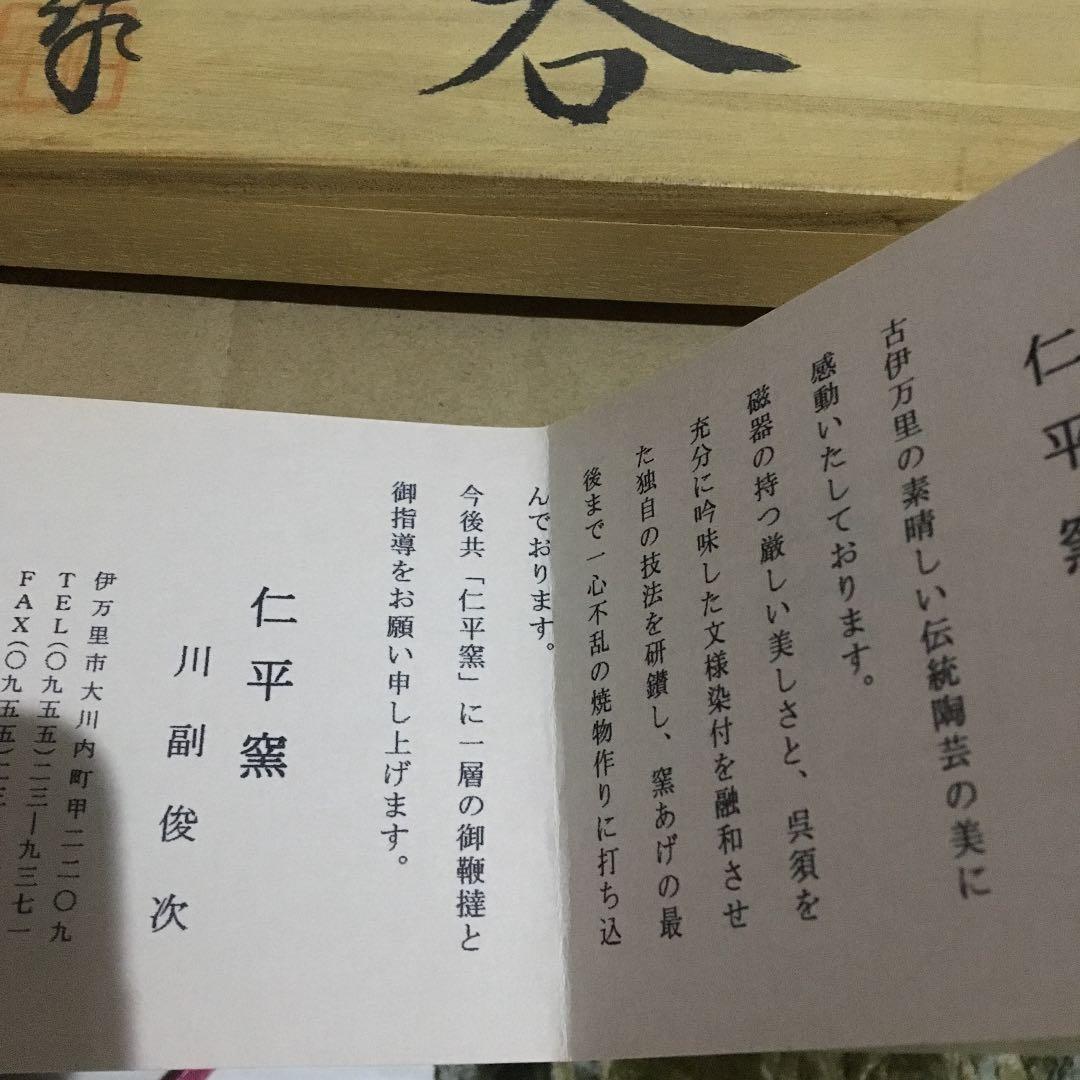 仁平窯
古伊万里の素晴しい伝統陶芸の美に
感動いたしております。
磁器の持つ厳しい美しさと、呉須を
充分に吟味した文様染付を融和させ
た独自の技法を研鑽し、窯あげの最
後まで一心不乱の焼物作りに打ち込
んでおります。
今後共「仁平窯」に一層の御鞭撻と
御指導をお願い申し上げます。
仁平窯
川副俊次
伊万里市大川内町甲二二〇九
TEL(〇九五五)二三ー九三七一
FAX(〇九五五)二三